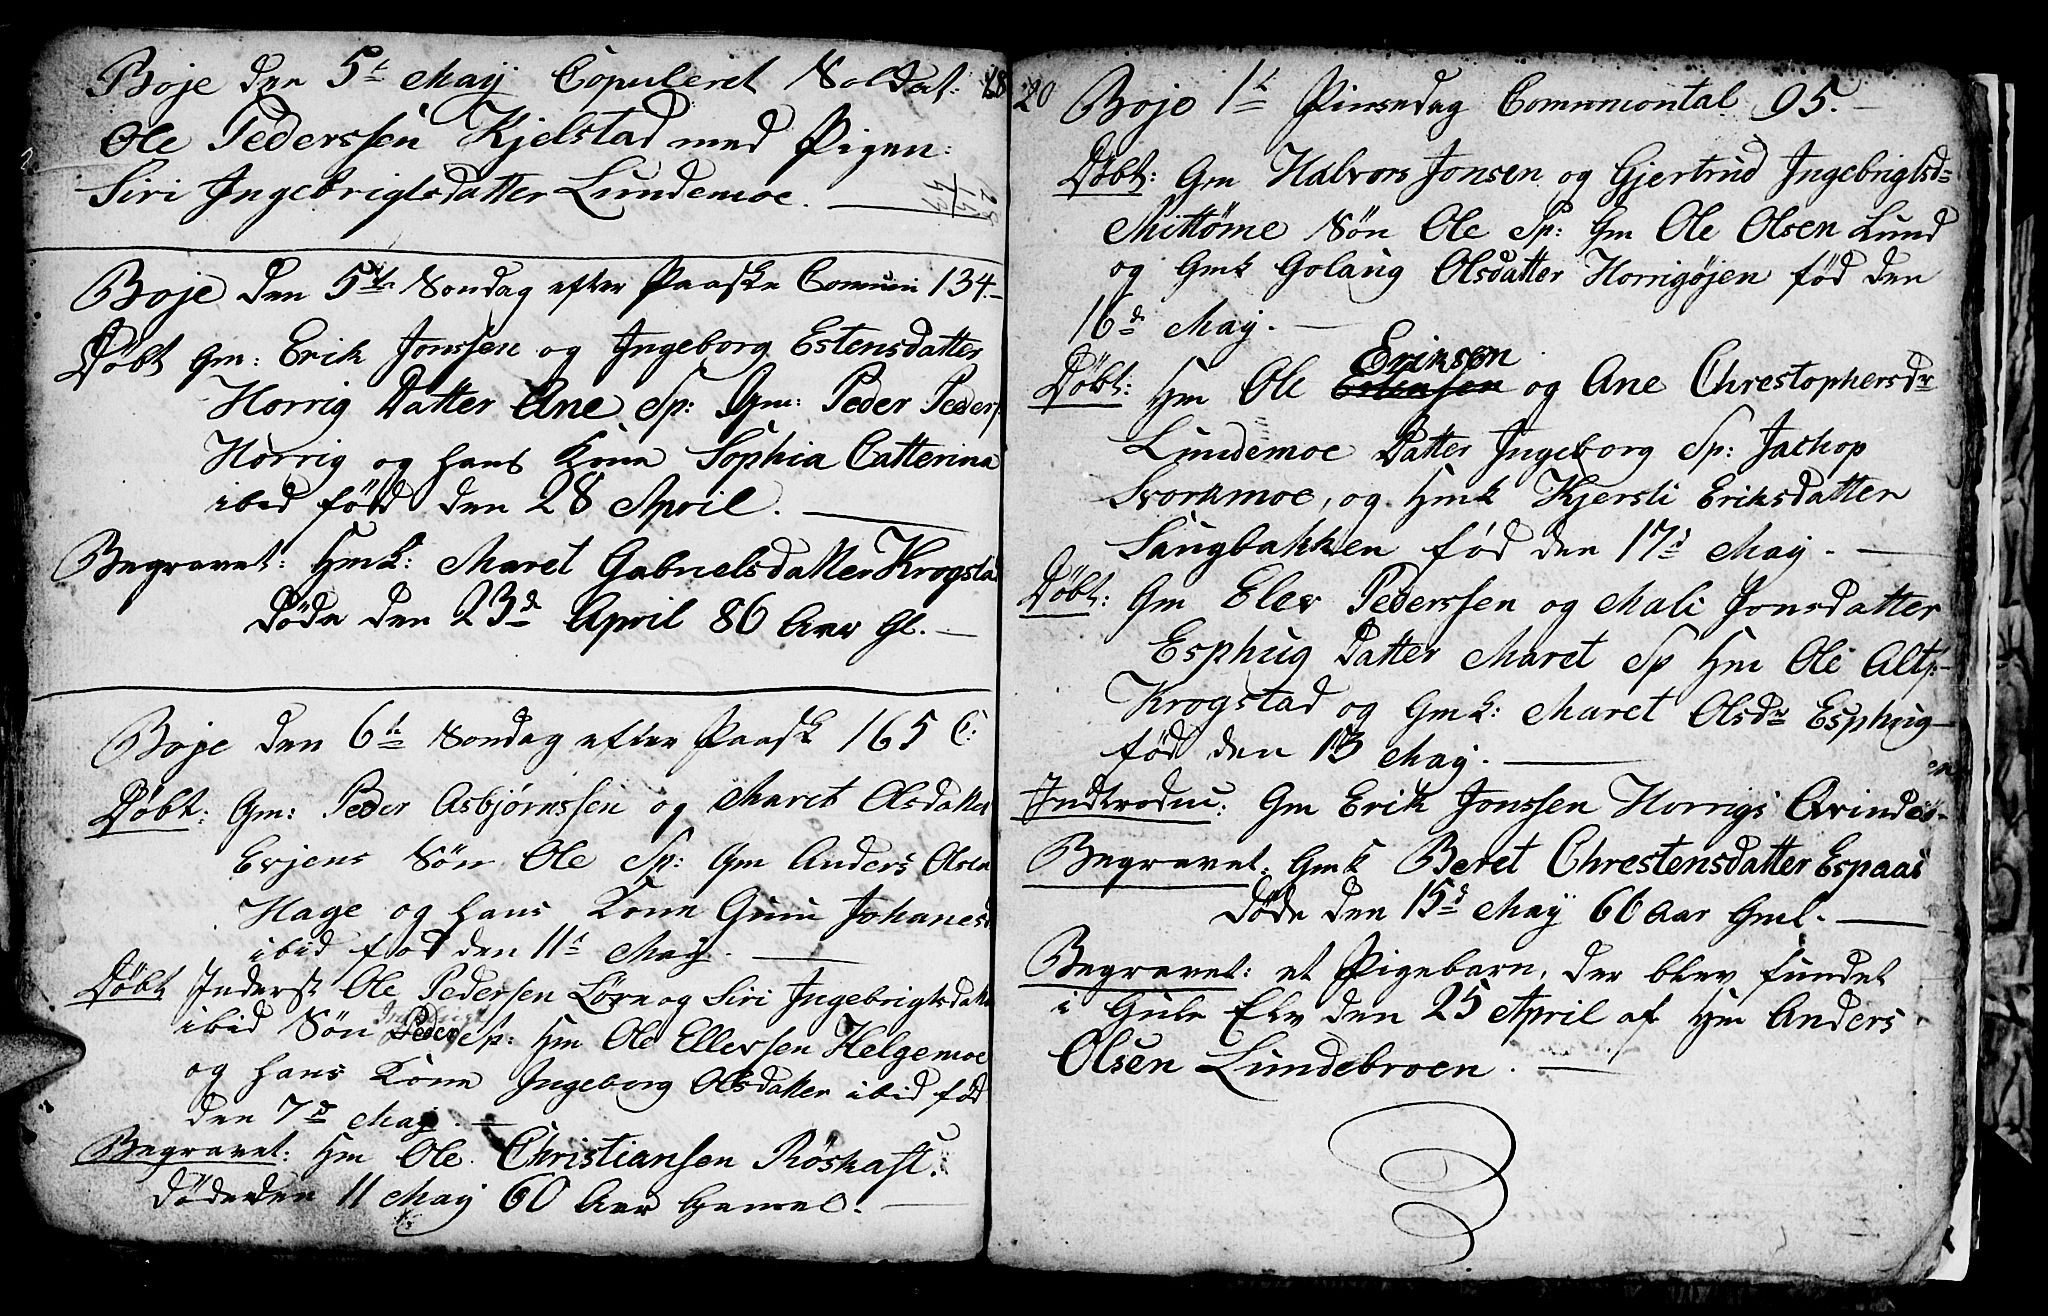 Boje den 5t May Copuleret Soldat:
Ole Pederssen Kjelstad med Pigen:
Siri Ingebrigtsdatter Lundemoe.
Boje den 5te Søndag efter Paaske Comuni 134
Døbt Gm: Erik Jonssen og Ingeborg Estensdatter
Horrig Datter Ane Sp: Gm: Peder Peders
Horrig og hans Kone Sophia Catterina
ibid fød den 28 April.
Begravet: Hmk: Maret Gabrielsdatter Krogstad
Døde den 23d April 86 Aar Gl.
Boje den 6te Søndag efter Paask 165 C:
Døbt: Gm: Peder Asbjørnssen og Maret Olsdatter
Evjens Søn Ole Sp: Gm Anders Olsen
Hage og hans Kone Guru Johanesd
ibid fød den 11t May.
Døbt Inderst Ole Pedersen Løre og Siri Ingebrigtsdatter
ibid Søn Peder Sp: Hm Ole Ellevsen Helgemoe
og hans Kone Ingeborg Olsdatter ibid fød
den 7de May.
Begravet: Hm Ole Christiansen Røskaft.
døde den 11 May 60 Aar Gamel.
20
Boje 1t Pinsedag Commontal 95.
Døbt: Gm Halvors Jonsen og Gjertrud Ingebrigtsd=
Mittømе Søn Ole Sp: Gm Ole Olsen Lund
og Gmk Golaug Olsdatter Horrigøjen fød den
16d May.
Eriksen
Døbt: Hm Ole og Ane Chrestophersdr
Lundemoe Datter Ingeborg Sp: Jachop
Svorkmoe, og Hmk Kjersti Eriksdatter
Saugbakken fød den 17d May.
Døbt: Gm Elev Pederssen og Mali Jonsdatter
Esphug Datter Maret Sp Hm Ole Altp:
Krogstad og Gmk: Maret Olsdr Esphug-
en
fød den 13 May.
Indtroduc: Gm Erik Jonssen Horrigs Qvinde
Begravet: Gmk Beret Chrestensdatter Espaas
Døde den 15d May 66 Aar Gml.
Begravet: et Pigebarn, der blev fundet
i Gule Elv den 25 April af Hm Anders
Olsen Lundebroen.